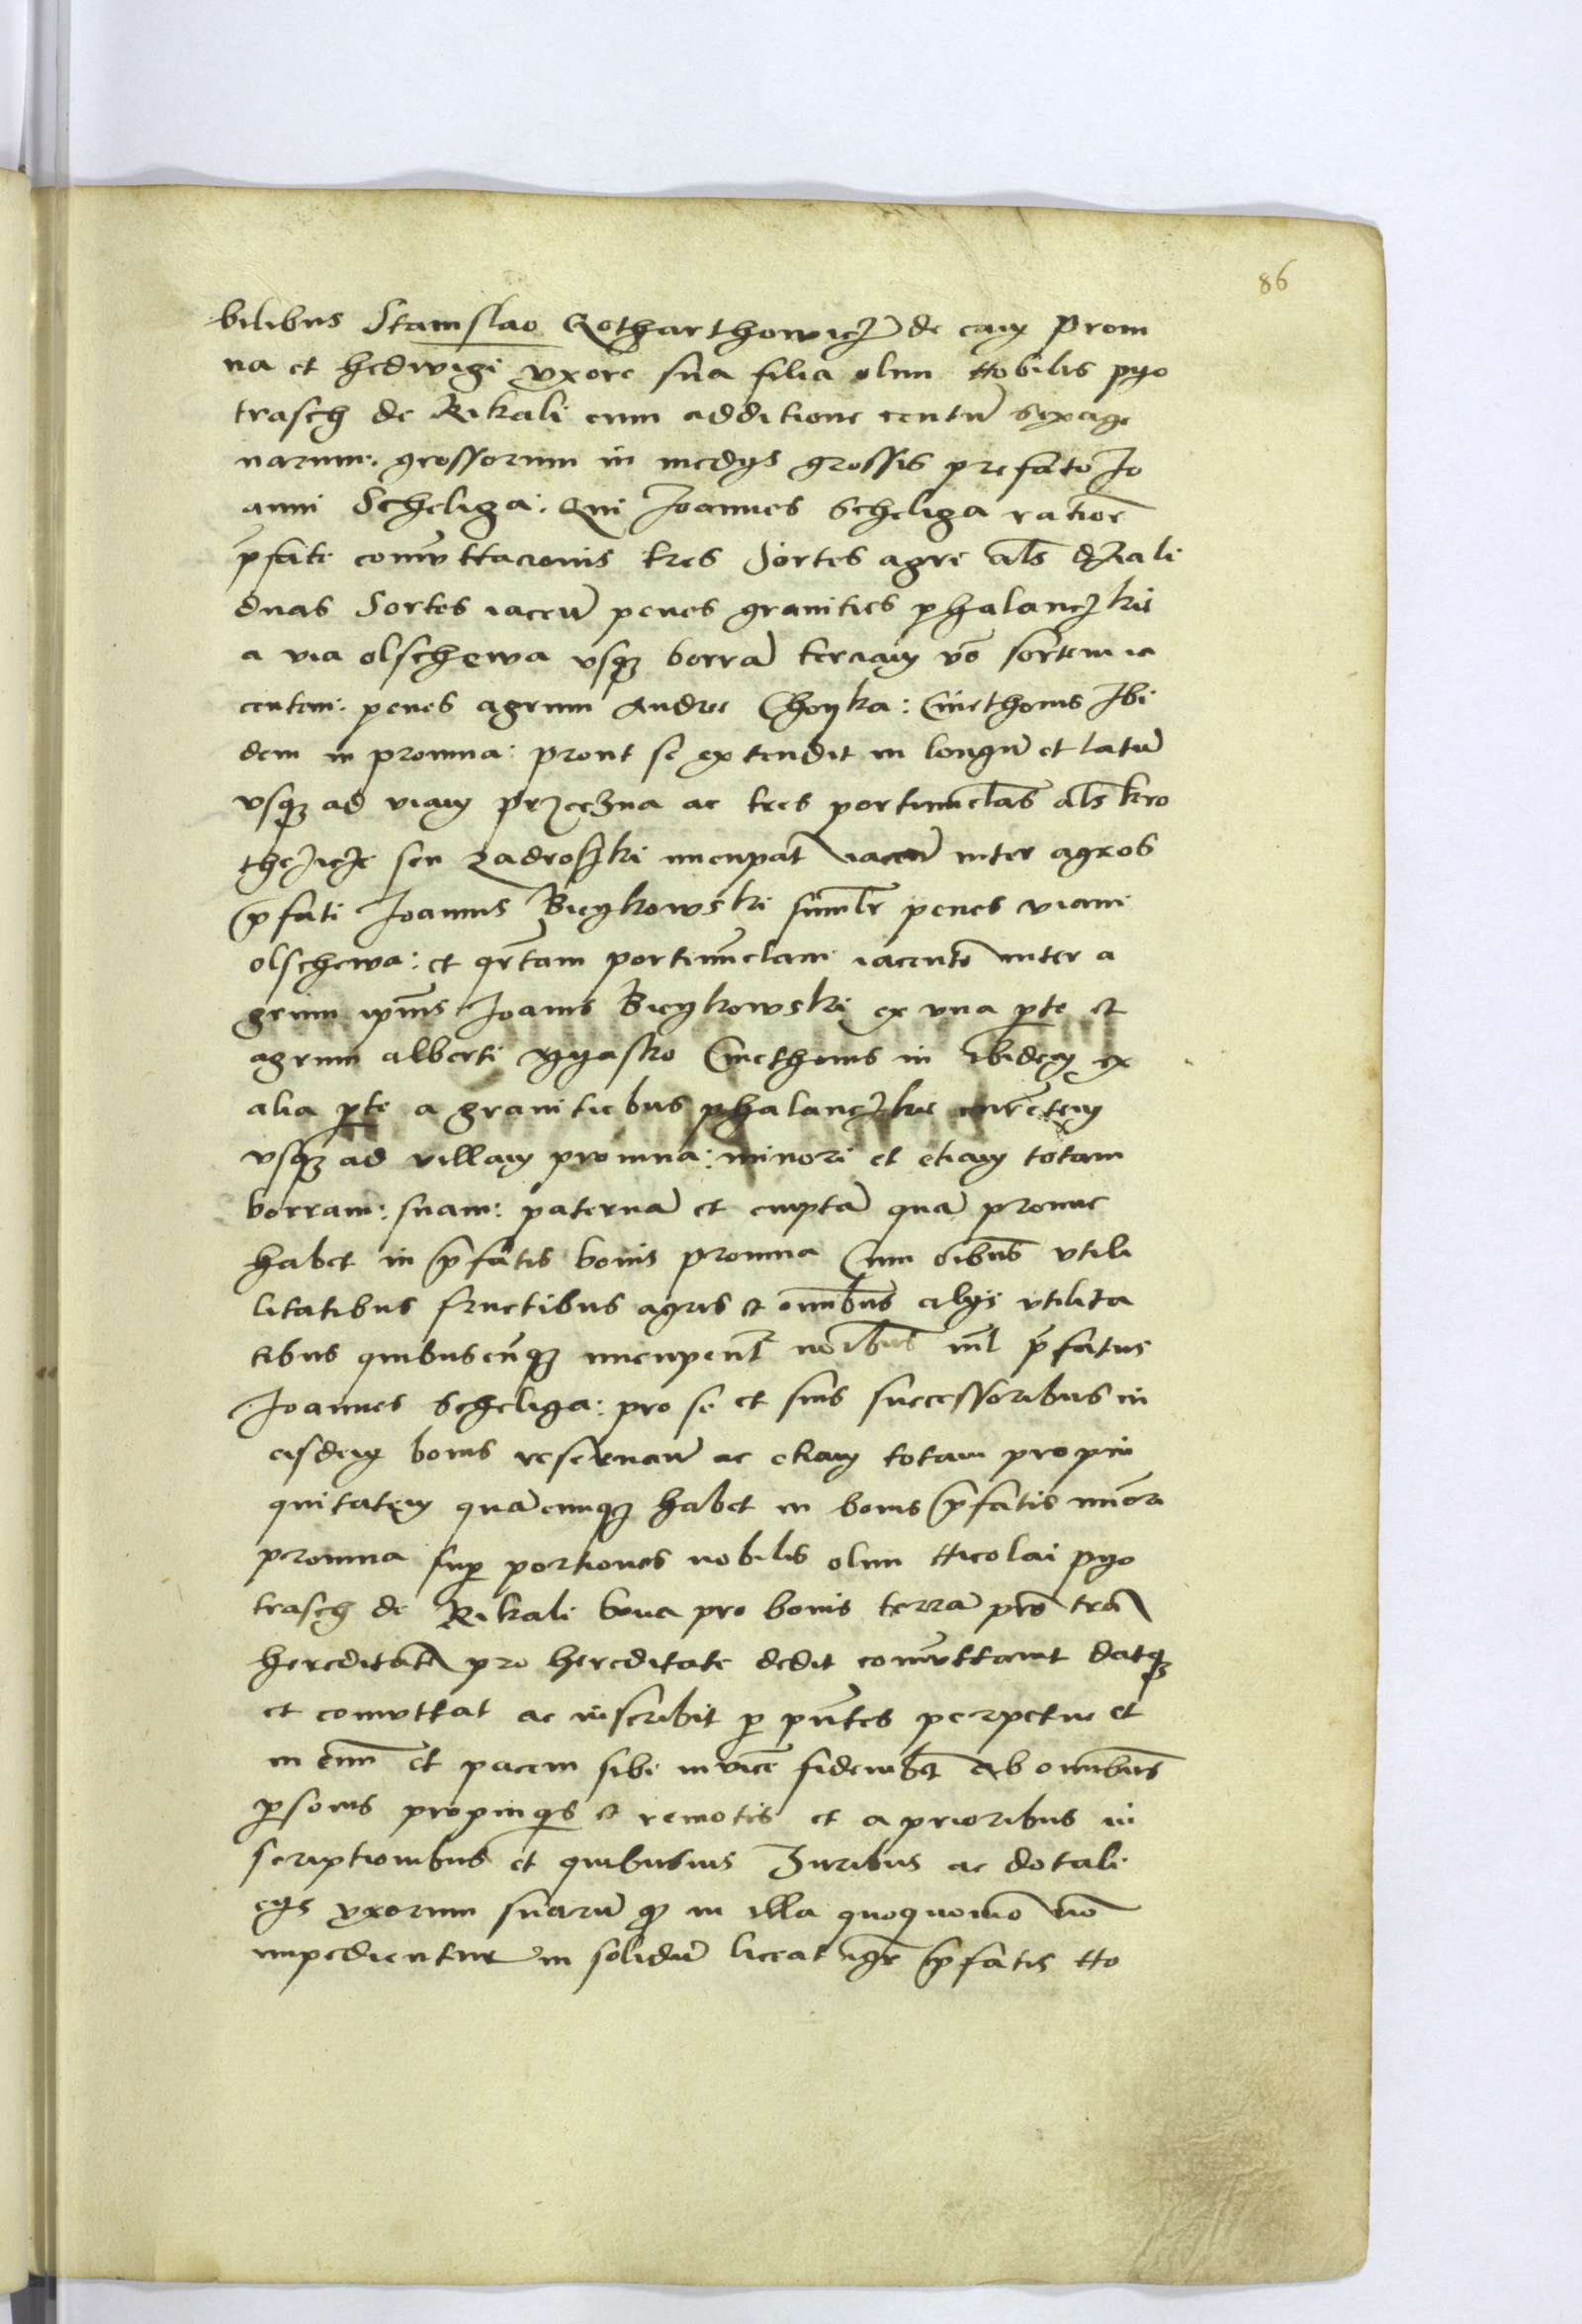 86
bilibus Stanislao Gotharthowicz de eam Prom
na et hedwigi vxore sua filia olim Nobilis pyo
trasch de Rikali cum additione centu sexage
narum grossorum in medys grossis prefato Jo
anni Scheliga: Qui Joannes Scheliga ratione
pfate comuttacionis tres Sortes agri als dziali
duas Sortes iacen penes granities phalanczkie
a via olschewa vsqz borra terciam vo sortem ia
centem: penes agrum Andree Choyka: Cmethonis Ibi
dem in promna: prout se extendit in longu et latu
vsqz ad viam przeczna ac tres portiunclas als kro
thczicze seu zadroszki nuncpat iacen inter agros
pfati Joannis Bieykowski similr penes viam
olschewa: et qrtam portiunclam iacente inter a
grum ipius Joanis Bieykowski ex vna pte et
agrum alberti Cmethonis in ibidem ex
alia pte a granitiebus phalanczkie
vsqz ad villam promna: minori et etiam totam
borram: suam: paterna et empta qua pronuc
habet in pfatis bonis promna Cum oibus vtili
litatibus fructibus agris et omnibus alys vtilita
tibus quibuscuqz nuncupent noibus nil pfatus
Joannes Scheliga: pro se et suis successoribus in
eisdem bonis reseruan ac etiam totam propin
quitatem quacunqz habet in bonis pfatis minori
promna sup portiones nobilis olim Nicolai pyo
trasch de Rikali bona pro bonis terra pro tra
hereditate pro hereditate dedit comuttauit datqz
et comuttat ac inscribit p pntes perpetue et
in euu et pacem sibi inuice fideiubet ab omnibus
psonis propinqis et remotis et a prioribus in
scriptionibus et quibusuis Juribus ac dotali
cys vxorum suaru qz in illa quoquomo no
impedientur in solidu liceat igr pfatis No